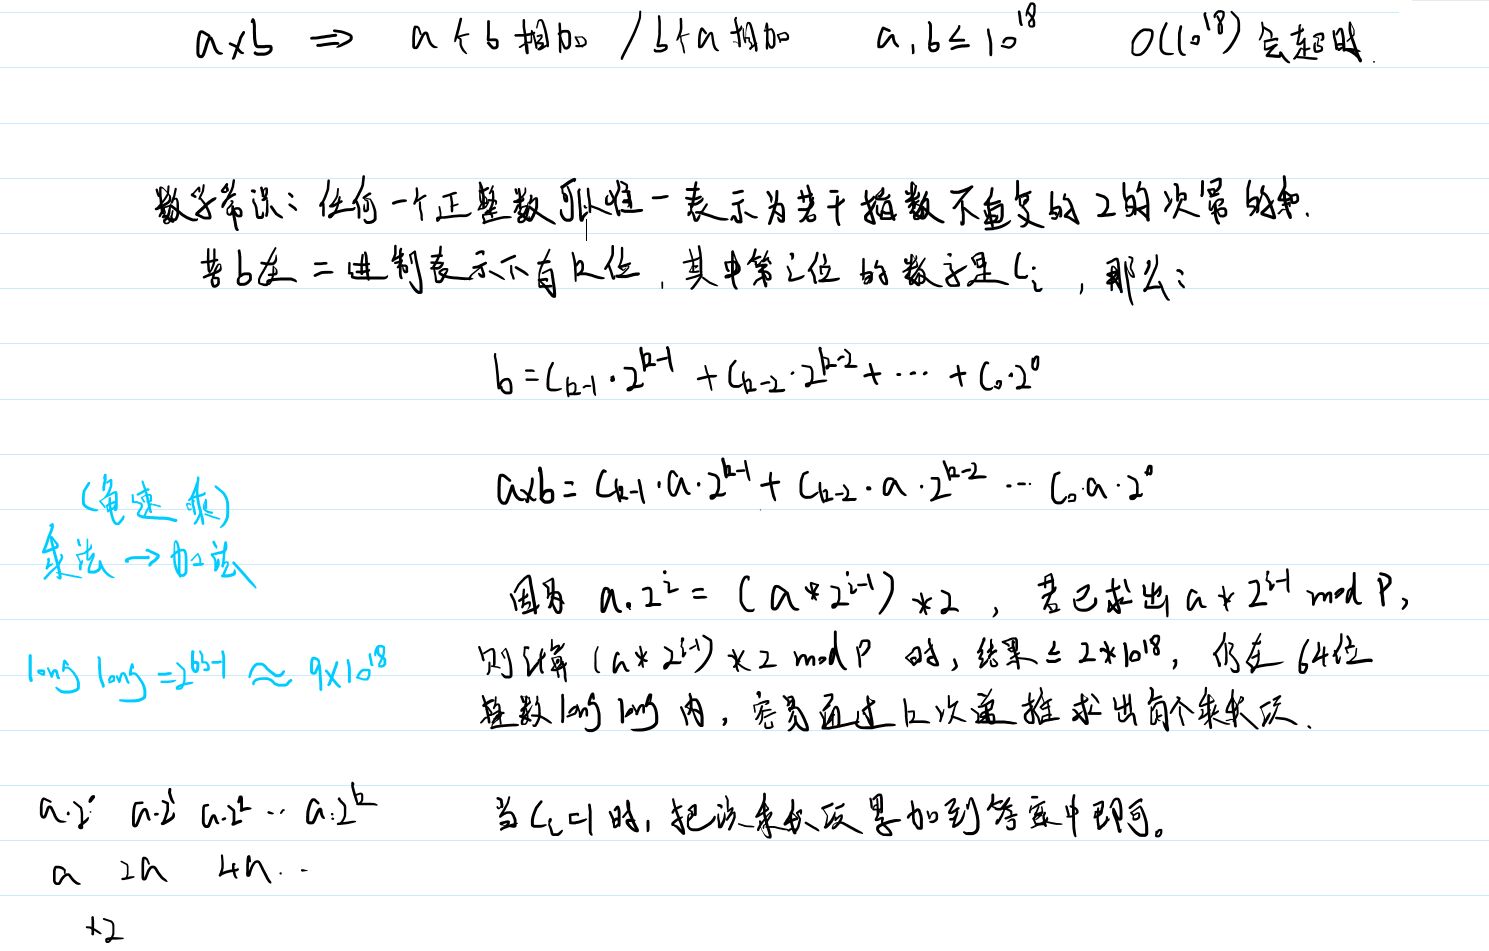 a×b ⇒ a个b相加 / b个a相加 a,b≤10^18 O(10^18)会超时.
数学常识: 任何一个正整数可以唯一表示为若干指数不重复的2的次幂的和.
若b在二进制表示下有k位, 其中第i位的数字是C_i, 那么:
b=C_{k-1}·2^{k-1}+C_{k-2}·2^{k-2}+⋯+C_0·2^0
a×b=C_{k-1}·a·2^{k-1}+C_{k-2}·a·2^{k-2}⋯C_0·a·2^0
(龟速乘)
乘法→加法
因为 a·2^i=(a*2^{i-1})*2, 若已求出a*2^{i-1} mod P,
则计算(a*2^{i-1})*2 mod P 时, 结果≤2*10^18, 仍在64位
long long=2^{63}-1≈9×10^18
整数long long内, 容易通过k次递推求出每个乘积项.
a·2^0 a·2^1 a·2^2⋯a·2^k
当C_i=1时, 把该乘积项累加到答案中即可。
a 2a 4a⋯
*2